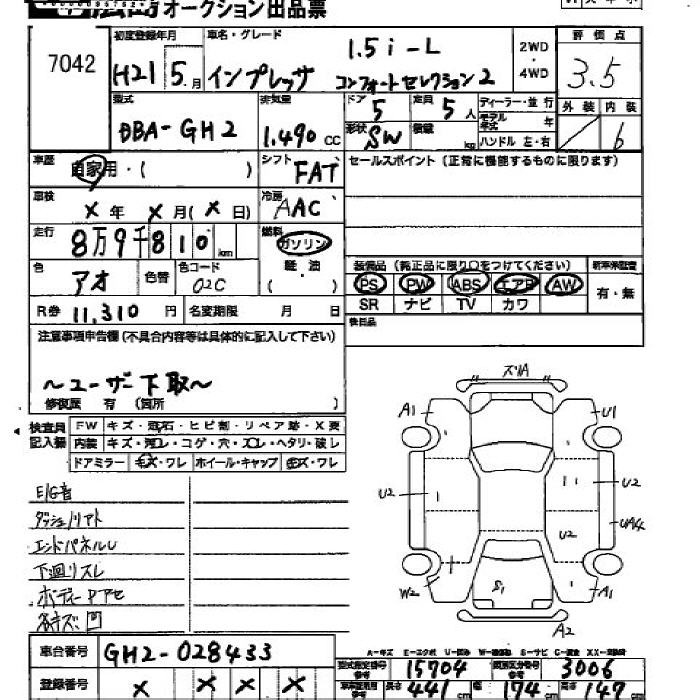 オークション出品票
7042
初度登録年月
H21 5月
車名・グレード
1.5i-L
インプレッサ コンフォートセレクション2
2WD・4WD
評価点
3.5
外装 内装
6
型式
DBA-GH2
排気量
1.490cc
ドア
5
定員
5人
形状
SW
積載 kg
ディーラー・並行
モデル年式 年
ハンドル 左・右
車歴
自家用・( )
シフト
FAT
セールスポイント (正常に機能するものに限ります)
車検
X年 X月(X日)
冷房
AAC
走行
8万9千810km
燃料
ガソリン
軽・油
( )
色
アオ
色替
色コード
02C
装備品 (純正品に限り○をつけてください)
PS PW ABS エアB AW
SR ナビ TV カワ
新車保証書
有・無
R券 11,310円
名変期限 月 日
検目品
注意事項申告欄 (不具合内容等は具体的に記入して下さい)
～ユーザー下取～
修復歴 有 (箇所 )
検査員記入欄
FW キズ・飛石・ヒビ割・リペア跡・X要
内装 キズ・汚レ・コゲ・穴・スレ・ヘタリ・破レ
ドアミラー キズ・ワレ ホイール・キャップ キズ・ワレ
E/G音
エンドパネルU
下廻リスレ
ズリA
A1
U1
U2
U2
UA4
U2
W2
S1
A1
A2
A-キズ E-エクボ U-凹み
車台番号
GH2-028433
登録番号
X X X X
型式指定番号
15904
類別区分番号
3006
長さ 441cm
幅 174cm
高さ 147cm